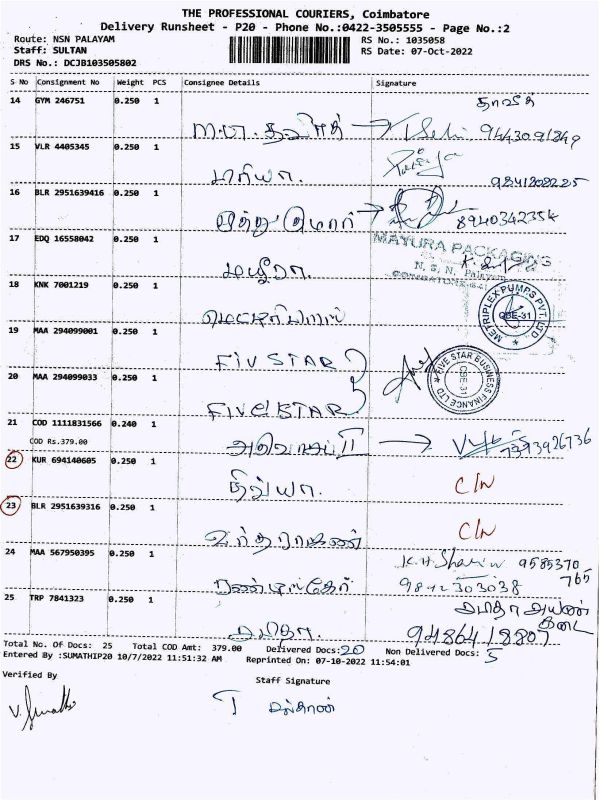 THE PROFESSIONAL COURIERS, Coimbatore
Delivery Runsheet - P20 - Phone No.:0422-3505555 - Page No.:2
Route: NSN PALAYAM RS No.: 1035058
Staff: SULTAN RS Date: 07-Oct-2022
DRS No.: DCJB103505802
S No Consignment No Weight PCS Consignee Details Signature
14 GYM 246751 0.250 1
9443091849
15 VLR 4405345 0.250 1
மரியா. 9841208225
16 BLR 2951639416 0.250 1
முத்துகுமார் 8940342354
17 EDQ 16558042 0.250 1
MAYURA PACKAGING
N. S. N. Palayam
18 KNK 7001219 0.250 1
METRIPLEX PUMPS PVT. LTD
CBE-31
19 MAA 294099001 0.250 1
FIV STAR
20 MAA 294099033 0.250 1
FIVE STAR
FIVE STAR BUSINESS FINANCE LTD
CBE-31
21 COD 1111831566 0.240 1
COD Rs.379.00
7393926736
22 KUR 694140605 0.250 1
திவ்யா. C/N
23 BLR 2951639316 0.250 1
வரதராஜன் C/N
24 MAA 567950395 0.250 1
9585370
765
9842303038
25 TRP 7841323 0.250 1
அமிதா. 9486418807
Total No. Of Docs: 25 Total COD Amt: 379.00 Delivered Docs: 20 Non Delivered Docs: 5
Entered By :SUMATHIP20 10/7/2022 11:51:32 AM Reprinted On: 07-10-2022 11:54:01
Verified By Staff Signature